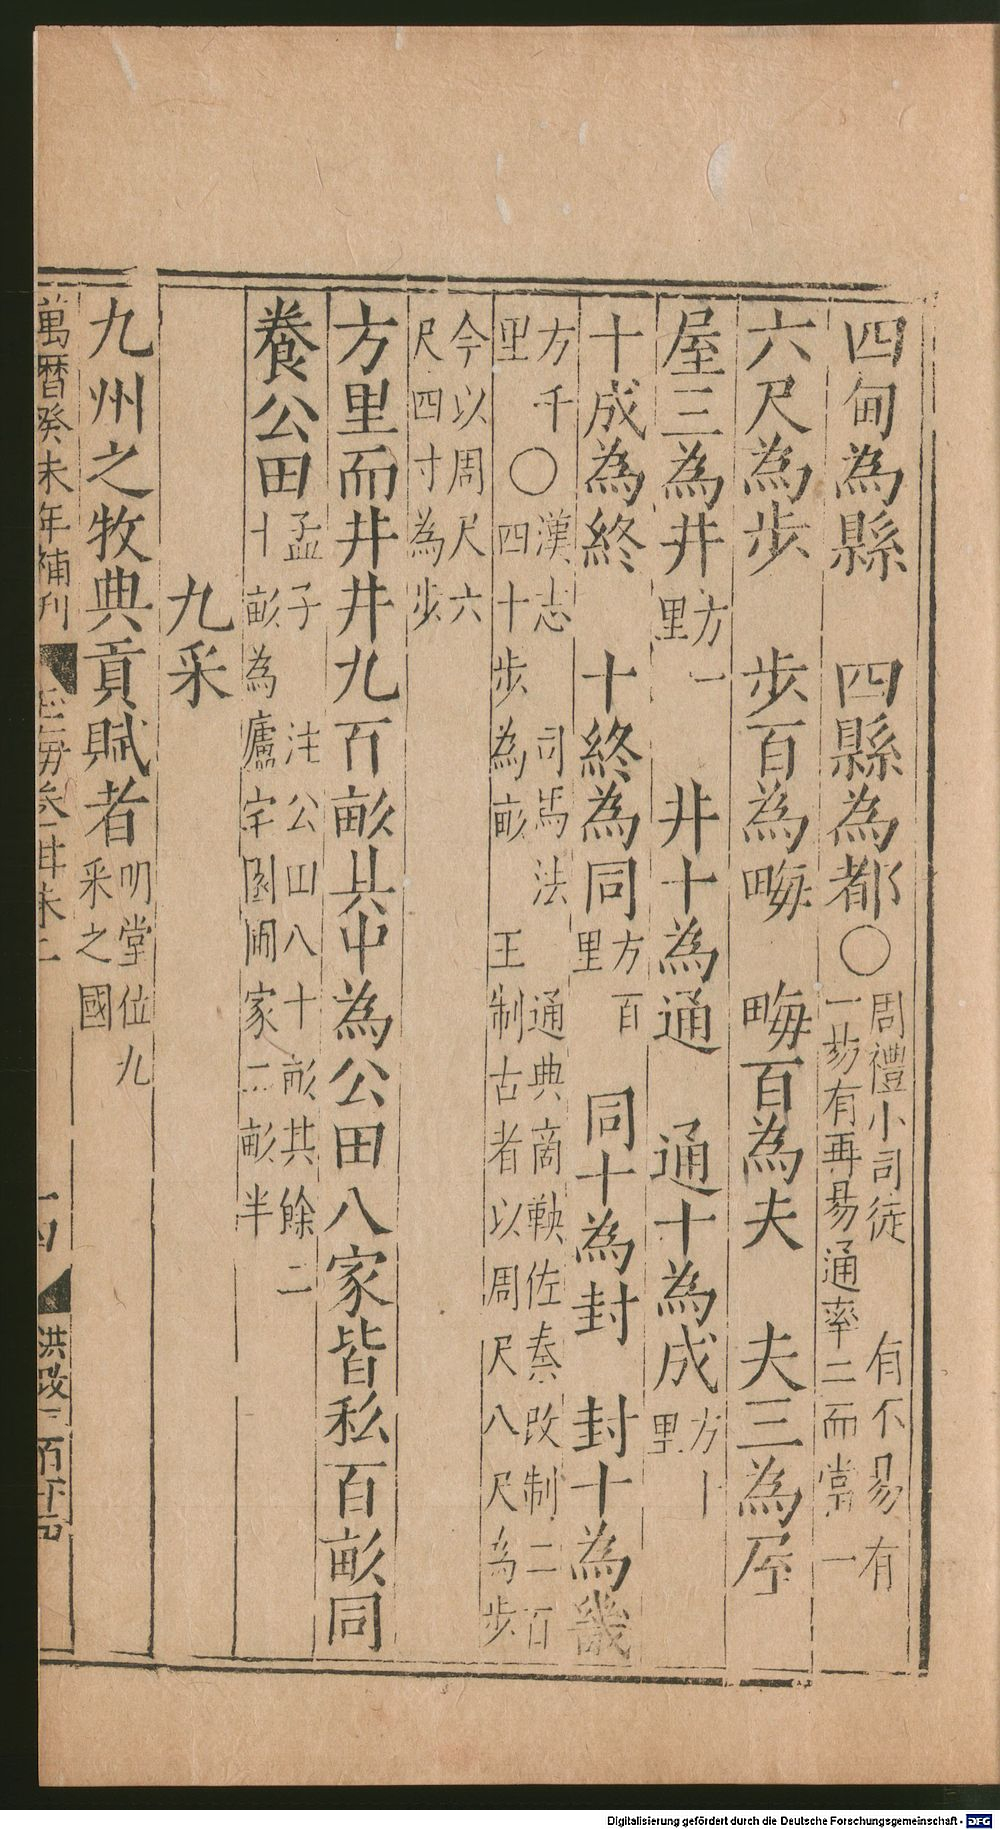 四甸為縣　四縣為都〇周禮小司徒　有不易有
一易有再易通率二而當一
六尺為步　步百為畮　畮百為夫　夫三為屋
屋三為井方一里　井十為通　通十為成方十里
十成為終　十終為同方百里　同十為封　封十為畿
方千里〇漢志　司馬法　通典商鞅佐秦改制二百
四十步為畝　王制古者以周尺八尺為步
今以周尺六尺四寸為步
方里而井井九百畝其中為公田八家皆私百畝同
養公田孟子　注公田八十畝其餘二
十畝為廬宅園圃家二畝半
九采
九州之牧典貢賦者明堂位九采之國
萬曆癸未年補刊
洪改三百廿四
Digitalisierung gefördert durch die Deutsche Forschungsgemeinschaft - DFG